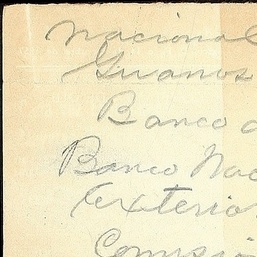 Nacional
Guanos
Banco d
Banco Nac
Exterio
Comisio